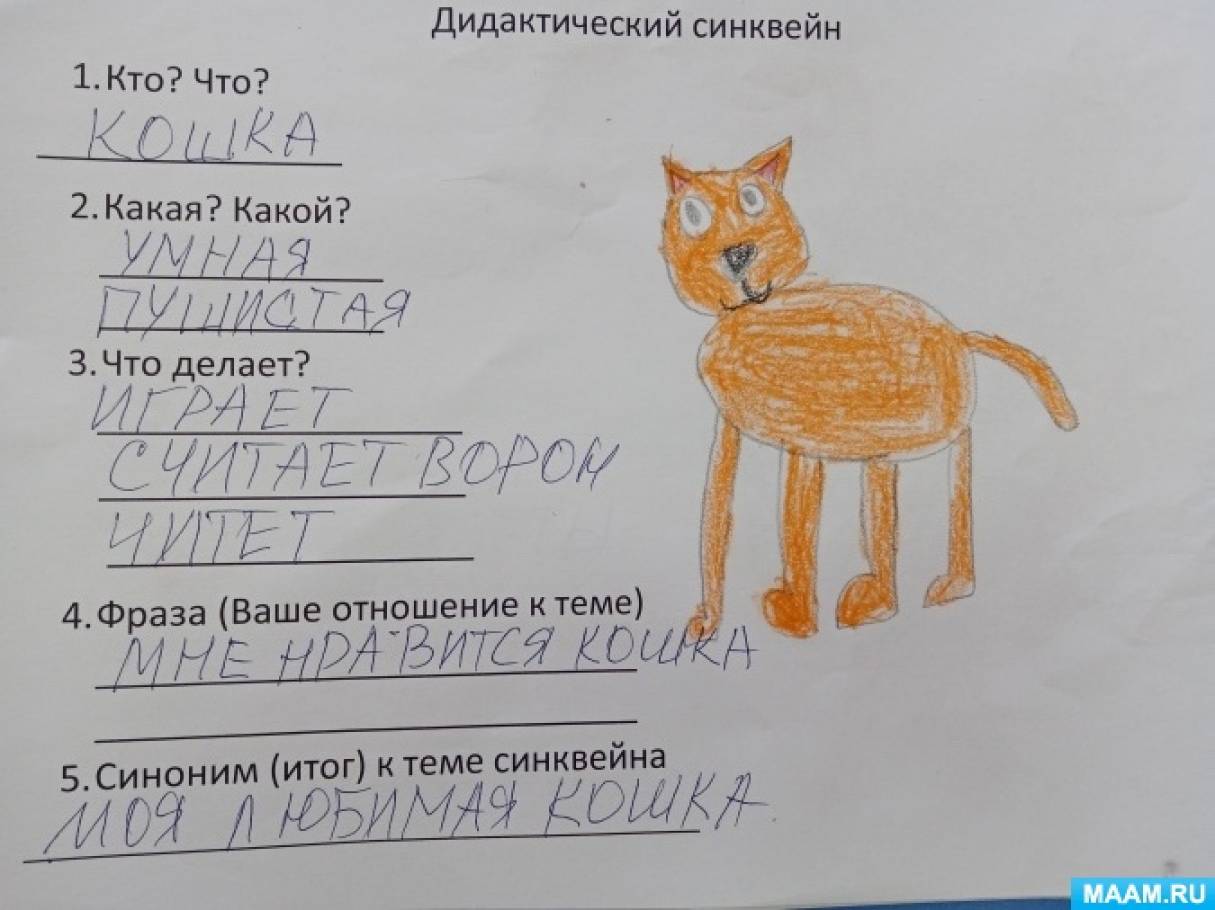 Дидактический синквейн
1.Кто? Что?
КОШКА
2.Какая? Какой?
УМНАЯ
ПУШИСТАЯ
3.Что делает?
ИГРАЕТ
СЧИТАЕТ ВОРОН
ЧИТЕТ
4.Фраза (Ваше отношение к теме)
МНЕ НРАВИТСЯ КОШКА
5.Синоним (итог) к теме синквейна
МОЯ ЛЮБИМАЯ КОШКА.
MAAM.RU